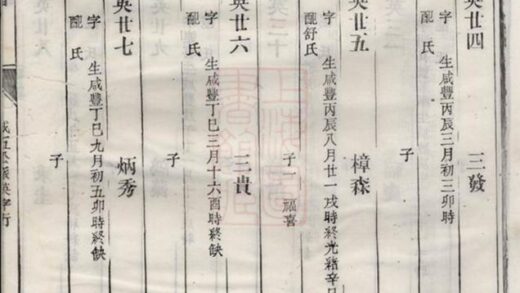 英廿四
三發
字 生咸豐丙辰三月初三卯時
配 氏
子
英廿五
樟森
字 生咸豐丙辰八月廿一戌時終光緒辛
配舒氏
子一 福喜
英廿六
三貴
字 生咸豐丁巳三月十六酉時終缺
配 氏
子
英廿七
炳秀
字 生咸豐丁巳九月初五卯時終缺
配 氏
子